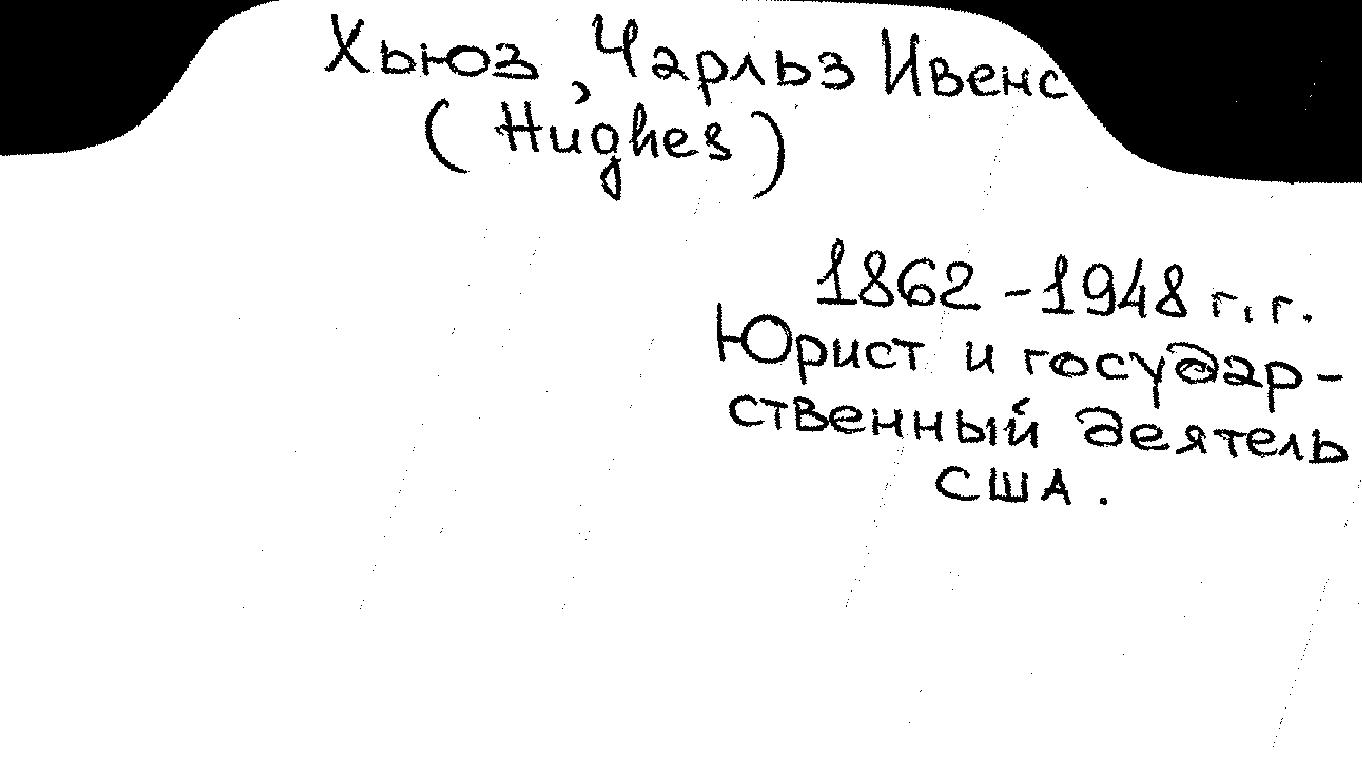 Хьюз, Чарльз Ивенс
(Hughes)
1862-1948 г.г.
Юрист и государ-
ственный деятель
США.